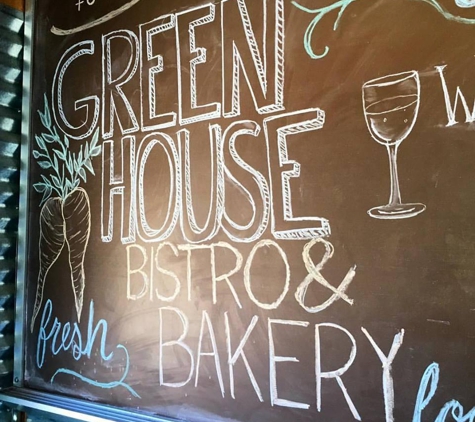 GREEN
HOUSE
BISTRO &
BAKERY
fresh